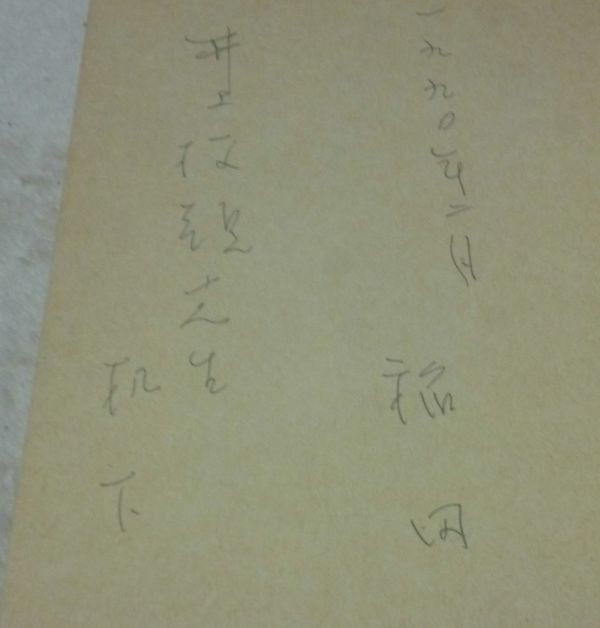 一九九〇年二月
稲田
井上先生
机下